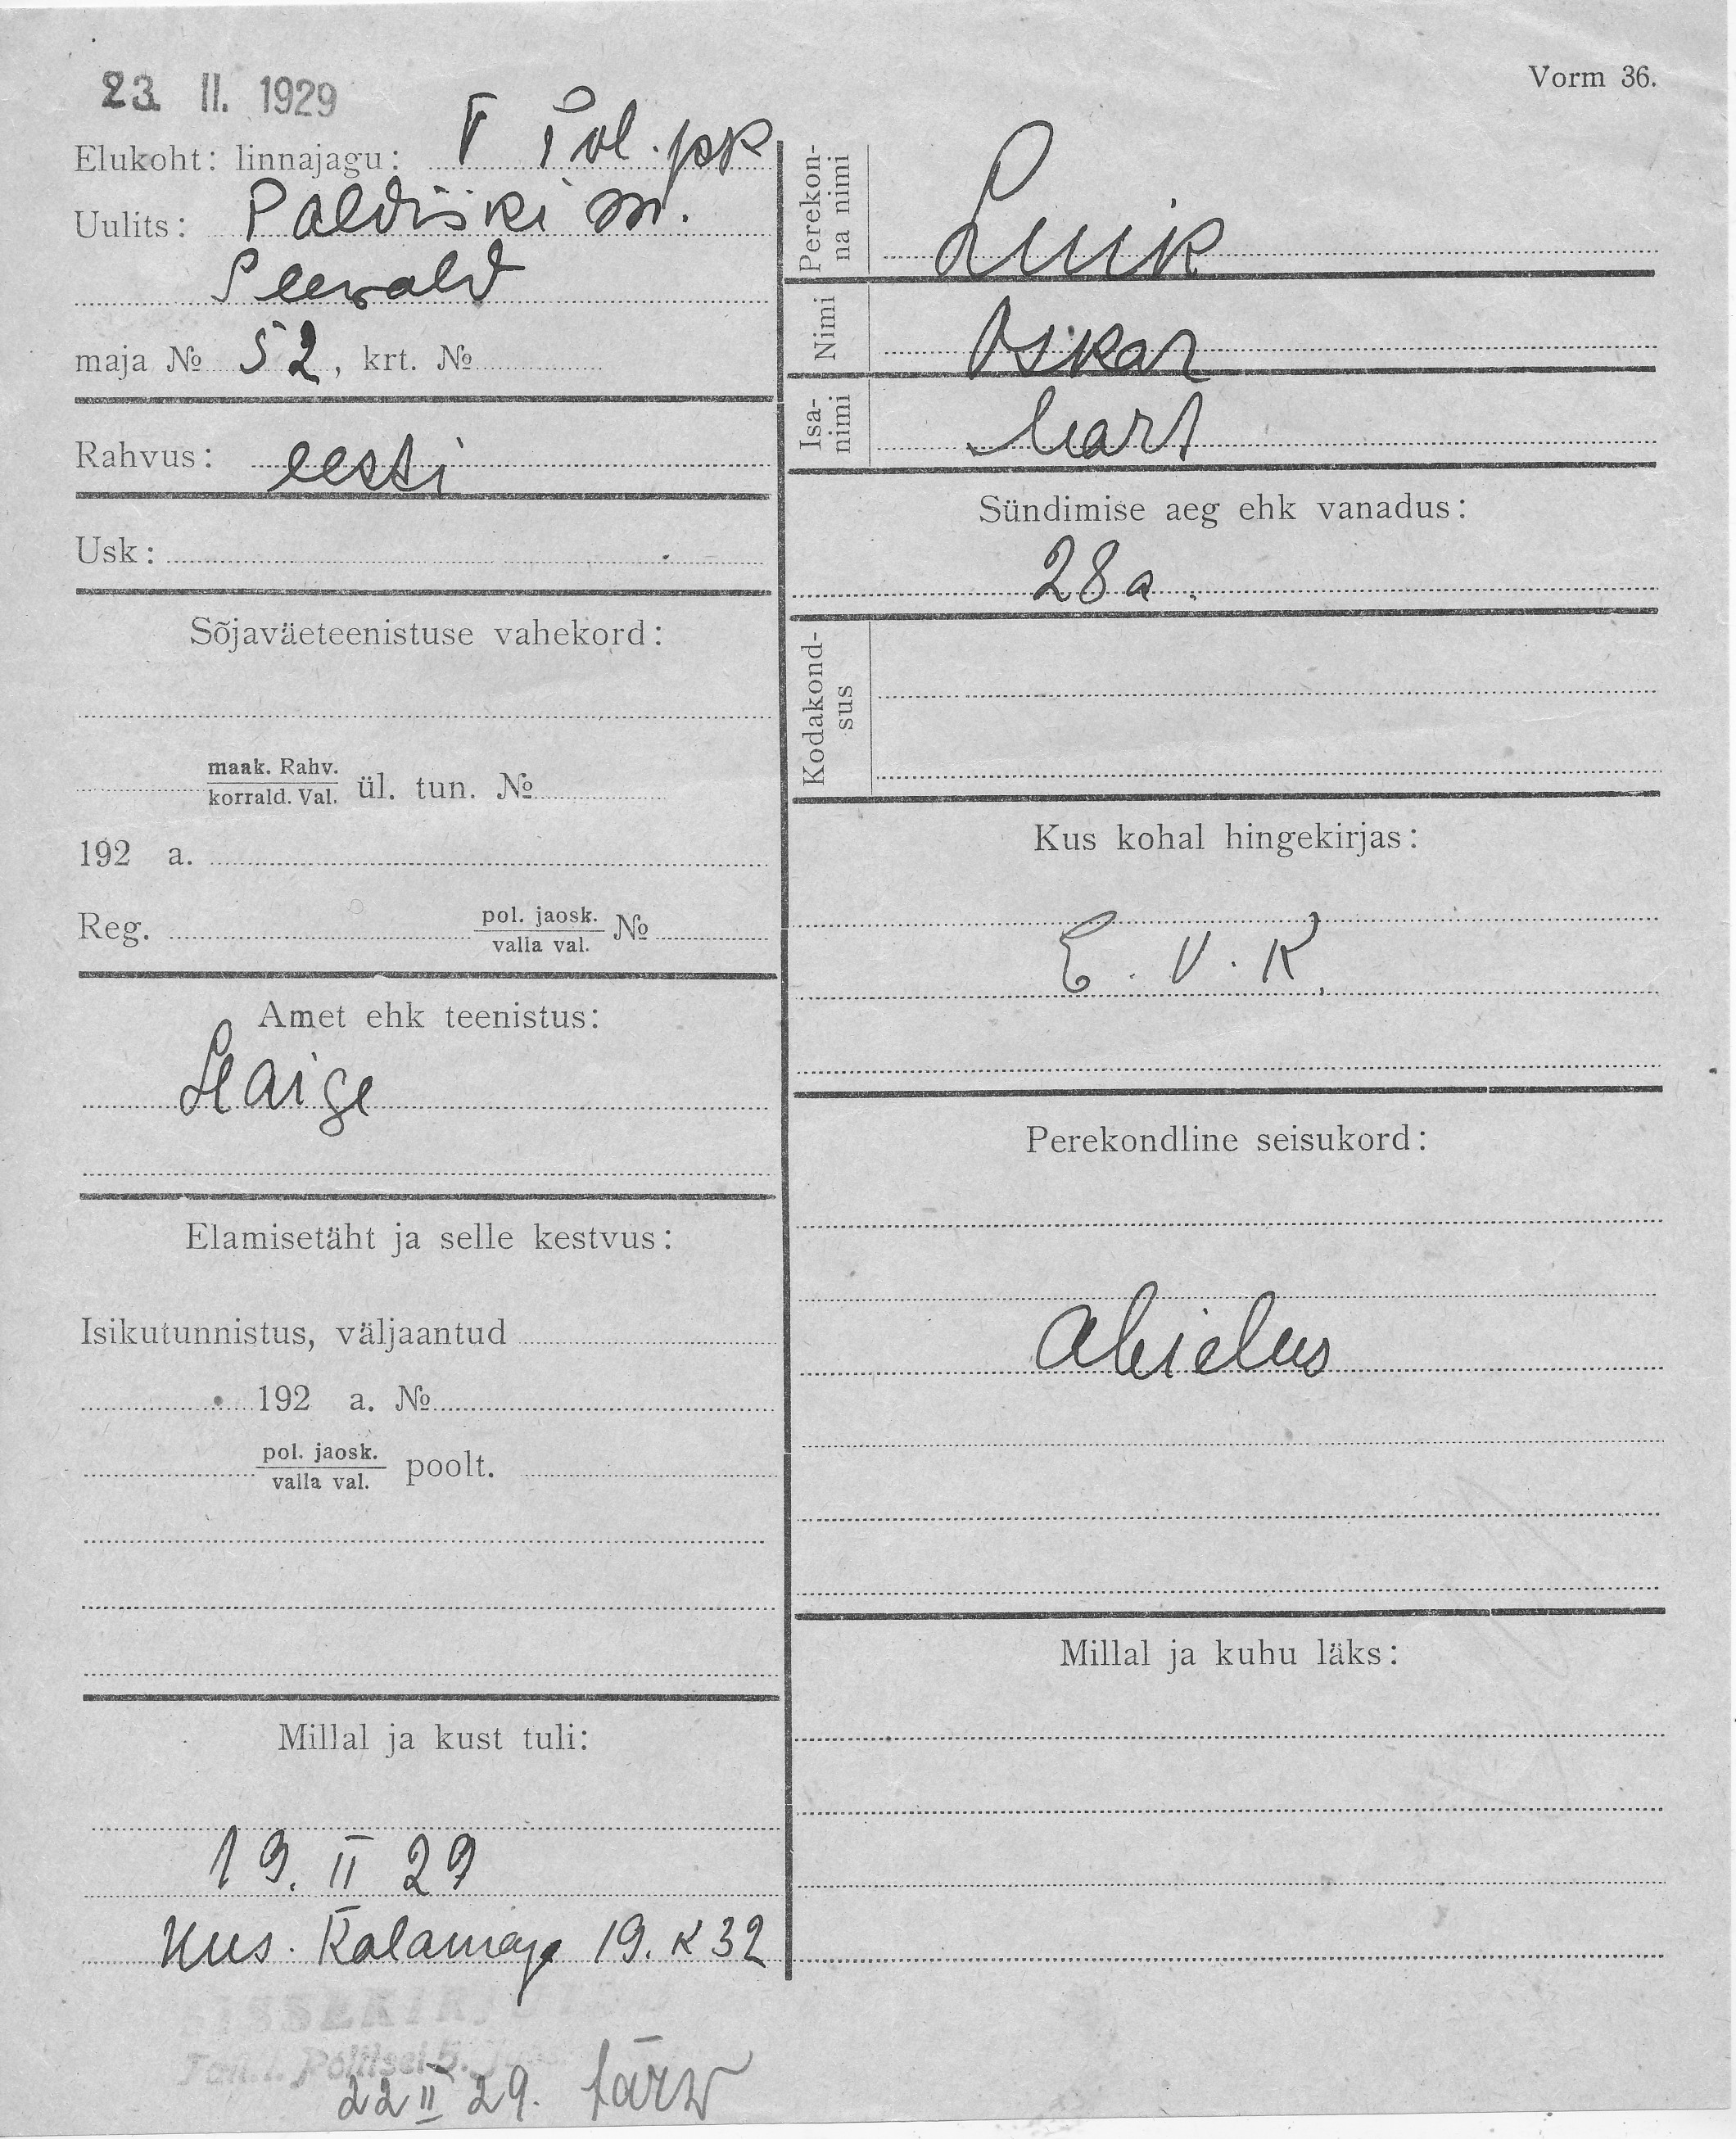 23. II. 1929
Vorm 36.
Elukoht: linnajagu: V Pol. jsk
Uulits: Paldiski m.
Seewald
maja № 52, krt. №
Rahvus: eesti
Usk:
Sõjaväeteenistuse vahekord:
maak. Rahv.
korrald. Val. ül. tun. №
192 a.
Reg. pol. jaosk.
valla val. №
Amet ehk teenistus:
Haige
Elamisetäht ja selle kestvus:
Isikutunnistus, väljaantud
192 a. №
pol. jaosk.
valla val. poolt.
Millal ja kust tuli:
19. II 29
Uus. Kalamaja 19. K 32
SISSEKIRJ
Tall. Politsei 5.
22 II 29.
Perekon-
na nimi
Luik
Nimi
Oskar
Isa-
nimi
Mart
Sündimise aeg ehk vanadus:
28 a.
Kodakond-
sus
Kus kohal hingekirjas:
E. V. K.
Perekondline seisukord:
abielus
Millal ja kuhu läks: